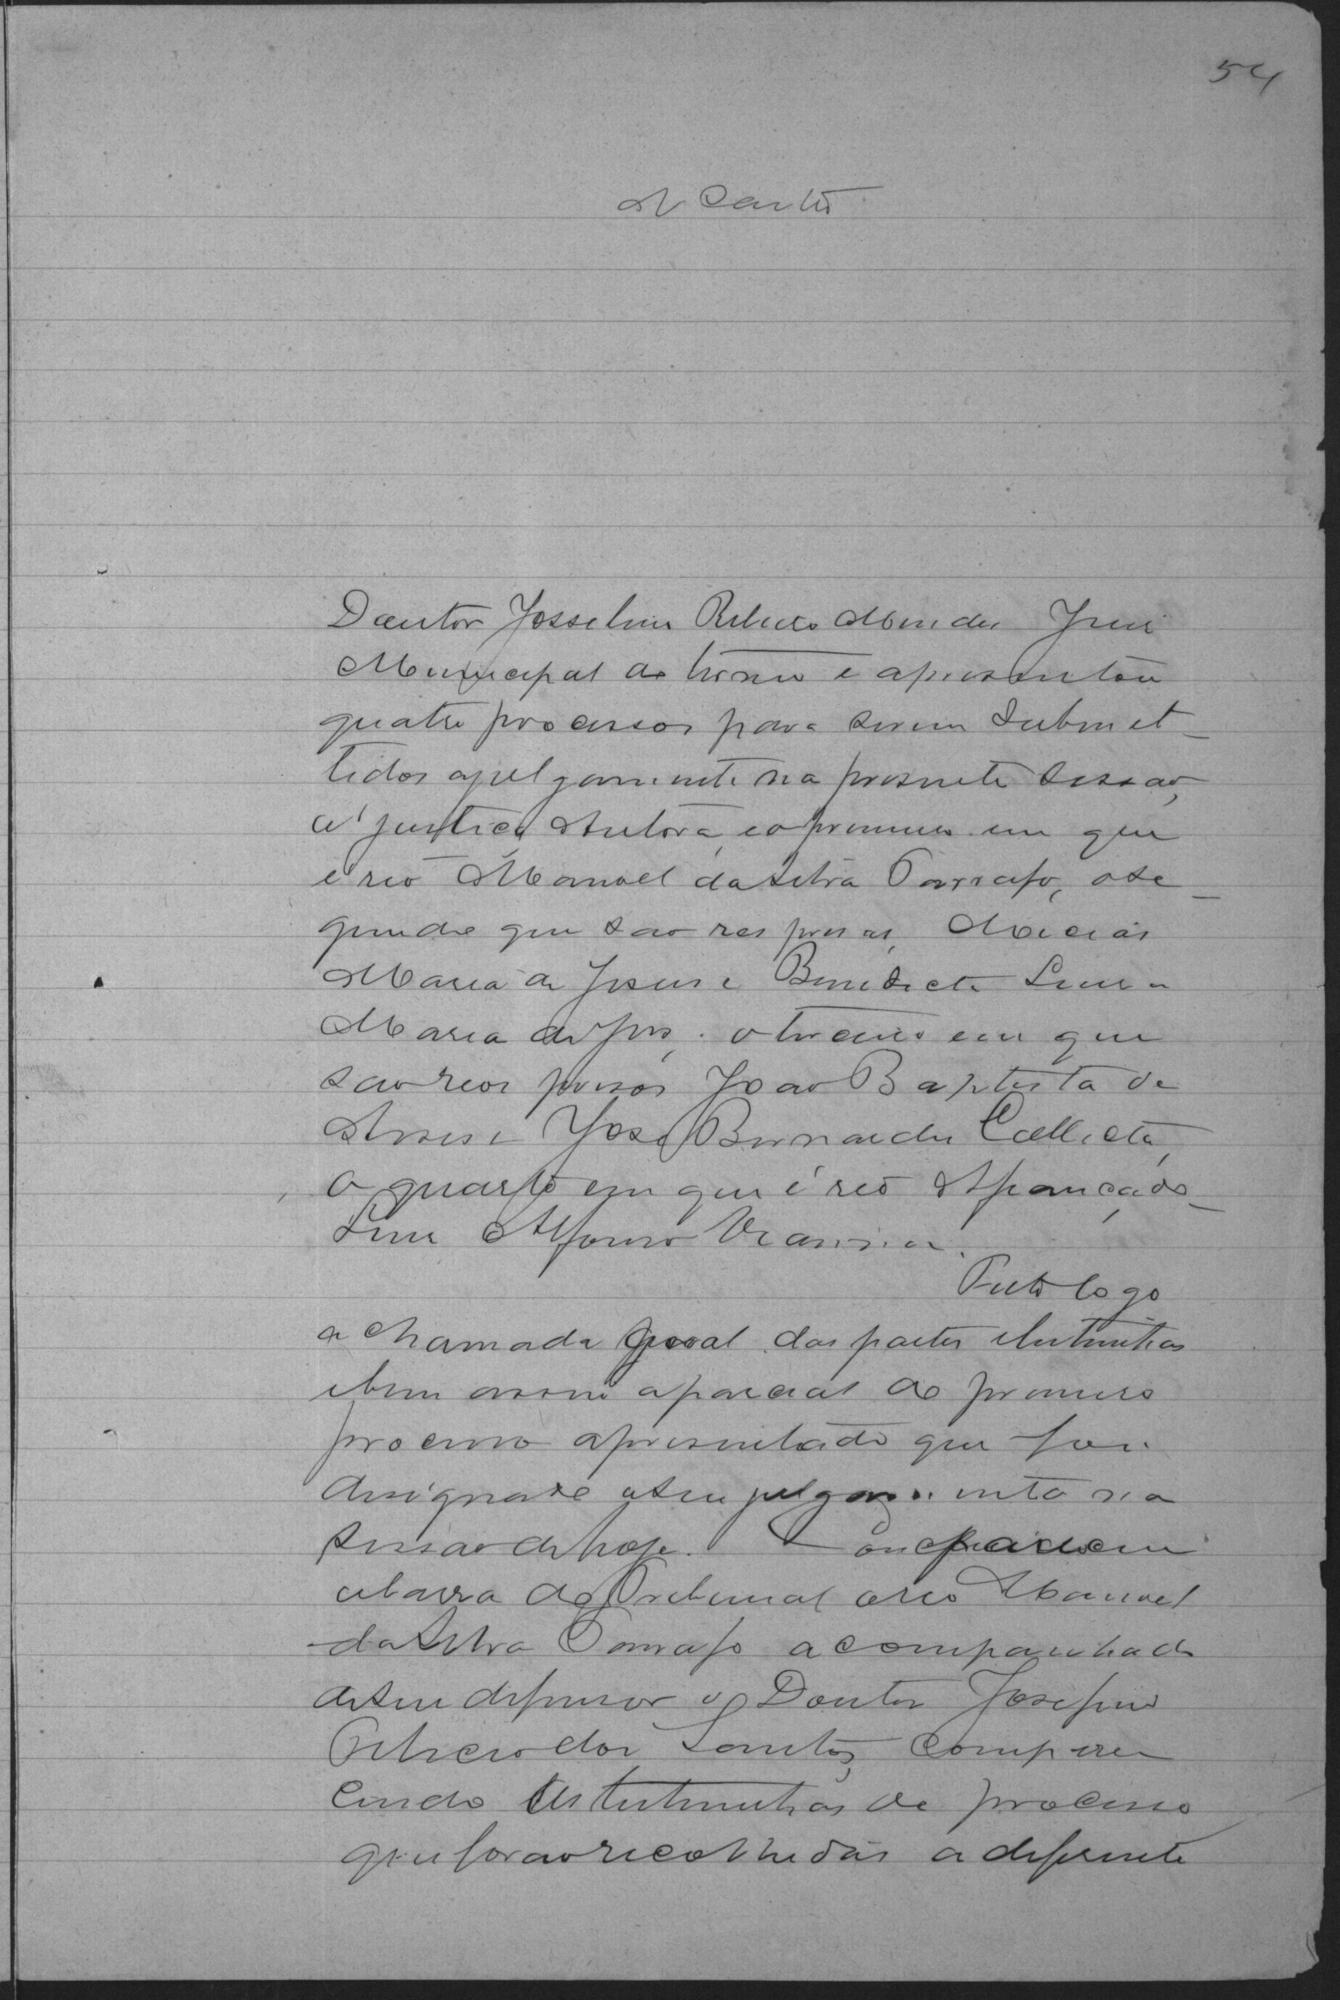 54
Doutor Josselino Ribeiro Mendes Juiz
Municipal do termo e apresentou
quatro processos para serem submet-
tidos a julgamento na presente sessão,
a justiça Autora, e o primeiro em que
é reo Manoel da Silva Garrafo, o se-
gundo que são res presas,
Maria de Jesus e Benedicta
Maria de Jesus, o terceiro em que
são reos presos João Baptista de
Assis e José Bernardes
o quarto em que é reo Afiançado
Luis Affonso Vianna.
Feito logo
a chamada geral das partes e testemunhas
e bem assim a parcial do primeiro
processo apresentado que foi
designado a seu julgamento na
sessão de hoje. Compareceu
a barra do Tribunal o reo Manoel
da Silva Garrafo acompanhado
de seu defensor o Doutor Josefino
Ribeiro dos Santos, compare
cendo as testemunhas do processo
que forão recolhidas a diferente